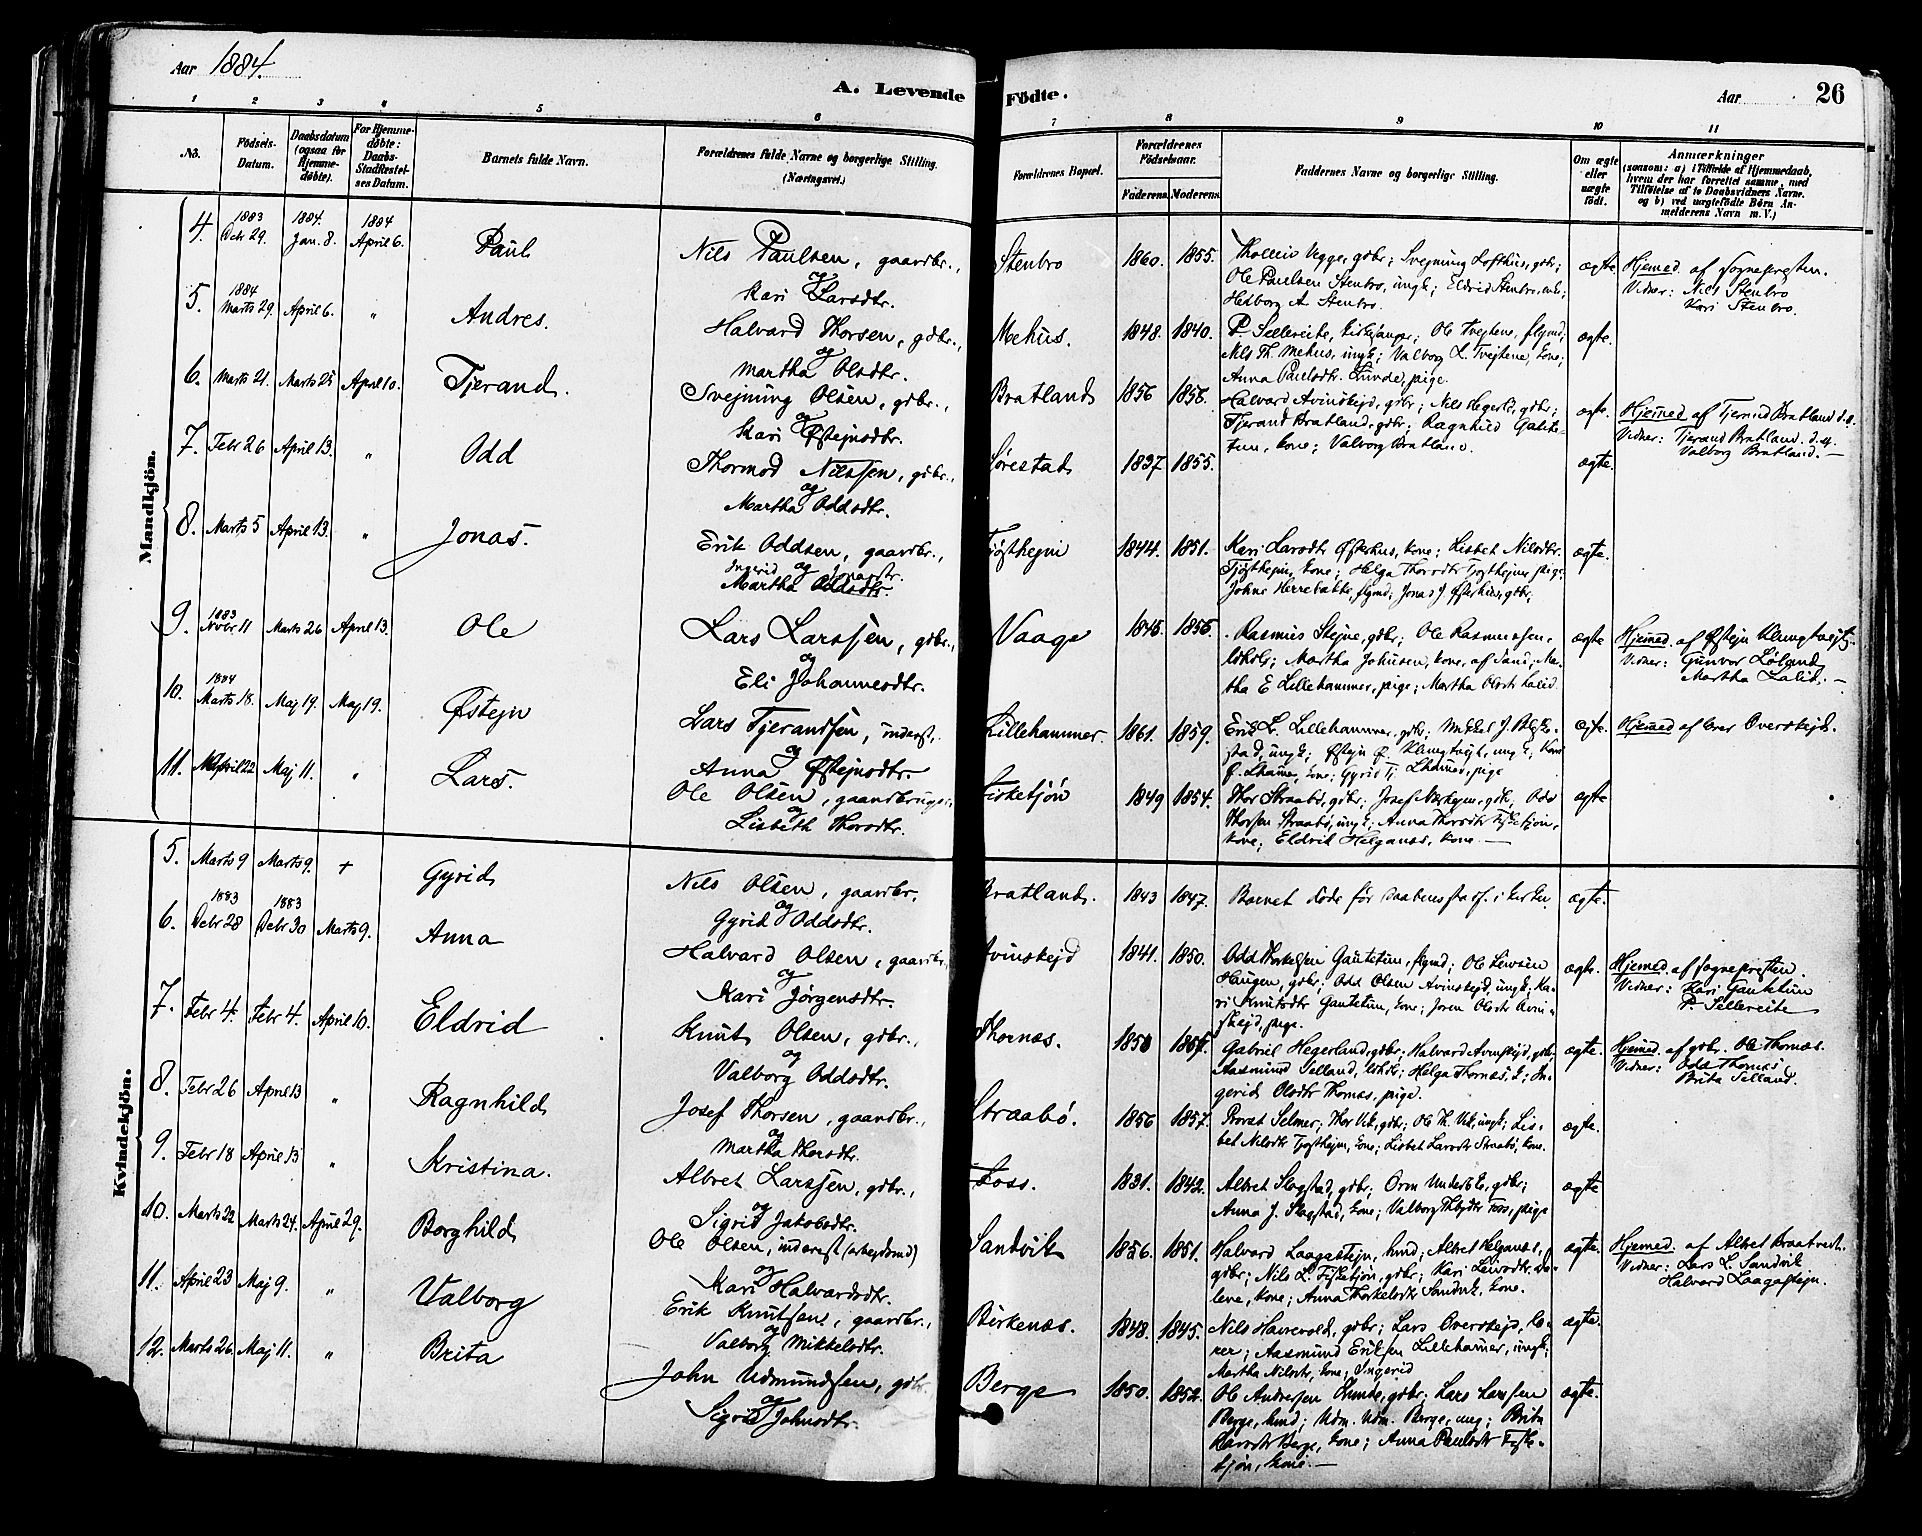 Aar 1884.
A. Levende Födte.
Aar
26
1
2
3
4
5
6
7
8
9
10
11
No.
Födsels-Datum.
Daabsdatum (ogsaa for Hjemme-døbte).
For Hjemme-døbte: Daabs-Stadfæstel-ses Datum.
Barnets fulde Navn.
Forældrenes fulde Navne og borgerlige Stilling. (Næringsvei.)
Forældrenes Bopæl.
Forældrenes Födselsaar.
Faderens.
Moderens.
Faddernes Navne og borgerlige Stilling.
Om ægte eller uægte født.
Anmærkninger
(saasom: a) i Tilfælde af Hjemmedaab,
hvem der har forrettet samme, med
Tilföielse af to Daabsvidners Navne,
og b) ved uægtefödte Börn An-
melderens Navn m. V.)
Mandkjön.
4. 1883 Decbr 29. 1884. Jan. 8. 1884 April 6. Paul
Nils Paulsen, gaardbr.,
og
Kari Larsdtr.
Stenbro 1860. 1855.
Tholleiv Vegge, gdbr; Svejnung Lofthus, gdbr;
Ole Paulsen Stenbro, ungk; Eldrid Stenbro, enke;
Hedborg A. Stenbro.
ægte
Hjemed. af sognepresten.
Vidner: Nils Stenbro
Kari Stenbro.
5. 1884 Marts 29. April 6. " Andres.
Halvard Thorsen, gdbr.,
og
Martha Olsdtr.
Mehus. 1848. 1840.
P. Sellereite, kirkesanger; Ole Tvejtene, flgmd;
Nils Th. Mehus, ungk; Valborg L. Tvejtene, kone;
Anna Paulsdtr. Lunde, pige.
ægte.
6. Marts 21. Marts 25 April 10. Tjerand.
Svejnung Olsen, gdbr.,
og
Kari Østejnsdtr.
Bratland 1856 1858.
Halvard Avinskejd, gdbr; Nils Hegerld, gdbr;
Tjerand Bratland, gdbr; Ragnhild Gaute-
tun, kone; Valborg Bratland.
ægte.
Hjemed af Tjerand Bratland d.e.
Vidner: Tjerand Bratland d.y.
Valborg Bratland.—
7. Febr 26 April 13. " Odd
Thormod Nilssen, gdbr.,
og
Martha Oddsdtr.
Sørestad 1837 1855.
ægte.
8. Marts 5 April 13. " Jonas.
Erik Oddsen, gaardbr.,
Ingerid og
Martha Oddsdtr.
Tjøsthejm 1844. 1851.
Kari Larsdtr Østerhus, kone; Lisbet Nilsdtr.
Tjøsthejm, kone; Helga Thorsdtr Tjøsthejm pige;
Johne Herrebakke, flgmd; Jonas J. Østerhus, gdbr.
ægte.
9. 1883 Novbr 11 Marts 26 April 13. Ole
Lars Larssen, gdbr.,
og
Eli Johannesdtr.
Vaage 1845. 1856.
Rasmus Stejne, gdbr; Ole Rasmussen,
; Martha Johnsen, kone, af Sand; Mar-
tha E Lillehammer, pige; Martha Olsdtr Lalid.
ægte
Hjemed. af Østejn Klungtvejt.
Vidner: Gunvor Løland
Martha Lalid.—
10. 1884 Marts 18. Maj 19. Maj 19. Østejn
Lars Tjerandsen, inderst,
og
Anna Østejnsdtr.
Lillehammer. 1861. 1859.
Erik L. Lillehammer, gdbr; Mikkel J.
stad, ungk; Østejn Ø. Klungtvejt, ungk; Kari
Ø. Lhamer, kone; Gyrid Tj. Lhamer, pige
ægte.
Hjemed af Overskejd.
11. April 22 Maj 11. " Lars.
Ole Olsen, gaardbruger,
og
Lisbeth Thorsdtr.
Fisketjøn 1849 1854.
Thor Straabø, gdbr; Josef, gdbr; Odd
Thorsen Straabø, ungk; Anna Thorsdtr Fisketjøn,
kone; Eldrid Helganes, kone.—
ægte
Kvindekjön.
5. Marts 9 Marts 9. + Gyrid
Nils Olsen, gaardbr.
og
Gyrid Oddsdtr.
Bratland. 1843 1847.
Barnet døde før daabens stadf. i kirken.
ægte.
6. 1883 Decbr 28 1883 Decbr 30 Marts 9. Anna
Halvard Olsen, gaardbr.,
og
Kari Jørgensdtr.
Avinskejd 1841. 1850.
Odd Thorkelsen Gautetun, flgmd; Ole Lewsen
Haugen, gdbr; Odd Olsen Avinskejd, ungk; Ka-
ri Knutsdtr Gautetun, kone; Joren Olsdtr Avin-
skejd, pige.
ægte.
Hjemed. af sognepresten.
Vidner: Kari Gautetun
P. Sellereite
7. Febr 4. Febr 4. April 10. Eldrid
Knut Olsen, gdbr.,
og
Valborg Oddsdtr.
Thornæs. 1850 1857.
Gabriel Hegerland, gdbr; Halvard Avinskejd, gdbr;
Aasmund Selland, ; Helga Thornæs, k; In-
gerid Olsdtr Thornæs, pige.
ægte.
Hjemed. af gdbr. Ole Thornæs.
Vidner: Odd Thornæs
Brita Selland.
8. Febr 26 April 13 " Ragnhild
Josef Thorsen, gaardbr.,
og
Martha Thorsdtr.
Straabø. 1856 1857.
Provst Selmer; Thor Vik, gdbr; Ole Th. Vik, ungk; Lis-
bet Nilsdtr Tjøsthejm, kone; Lisbet Larsdtr Straabø, kone.
ægte.
9. Febr 18 April 13 " Kristina.
Albret Larssen, gdbr.,
og
Sigrid Jakobsdtr.
Foss. 1831. 1842.
Albret Slagstad, gdbr; Orm Underbk, gdbr;
Anna J. Slagstad, kone; Valborg Foss, pige
ægte
10. Marts 22 Marts 24. April 29. Borghild
Ole Olsen, inderst (arbejdsmd)
og
Kari Halvardsdtr.
Sandvik 1856. 1851.
Halvard Laagastejn, hmd; Albret Helganes,
gdbr; Nils L. Fisketjøn, gdbr; Kari
leve, kone; Anna Thorkelsdtr Sandvik, kone.
ægte.
Hjemed. af Albret Braatveit.
Vidner: Lars L. Sandvik
Halvard Laagastejn.
11. April 23 Maj 9. " Valborg
Erik Knutsen, gaardbr.,
og
Valborg Mikkelsdtr.
Birkenæs. 1848. 1845.
Nils Havrevold, gdbr; Lars Overskejd, læ-
rer; Aasmund Eriksen Lillehamer, ungk;
Martha Nilsdtr, kone; Ingerid
ægte.
12. Marts 26. Maj 11. " Brita
John Udmundsen, gdbr.
og
Sigrid Johnsdtr.
Berge 1850. 1852.
Ole Andresen Lunde, gdbr; Lars Larssen
Berge, hmd; Udm. Udm. Berge, ung; Brita
Larsdtr Berge, kone; Anna Paulsdtr Fiske-
tjøn, kone.—
ægte.